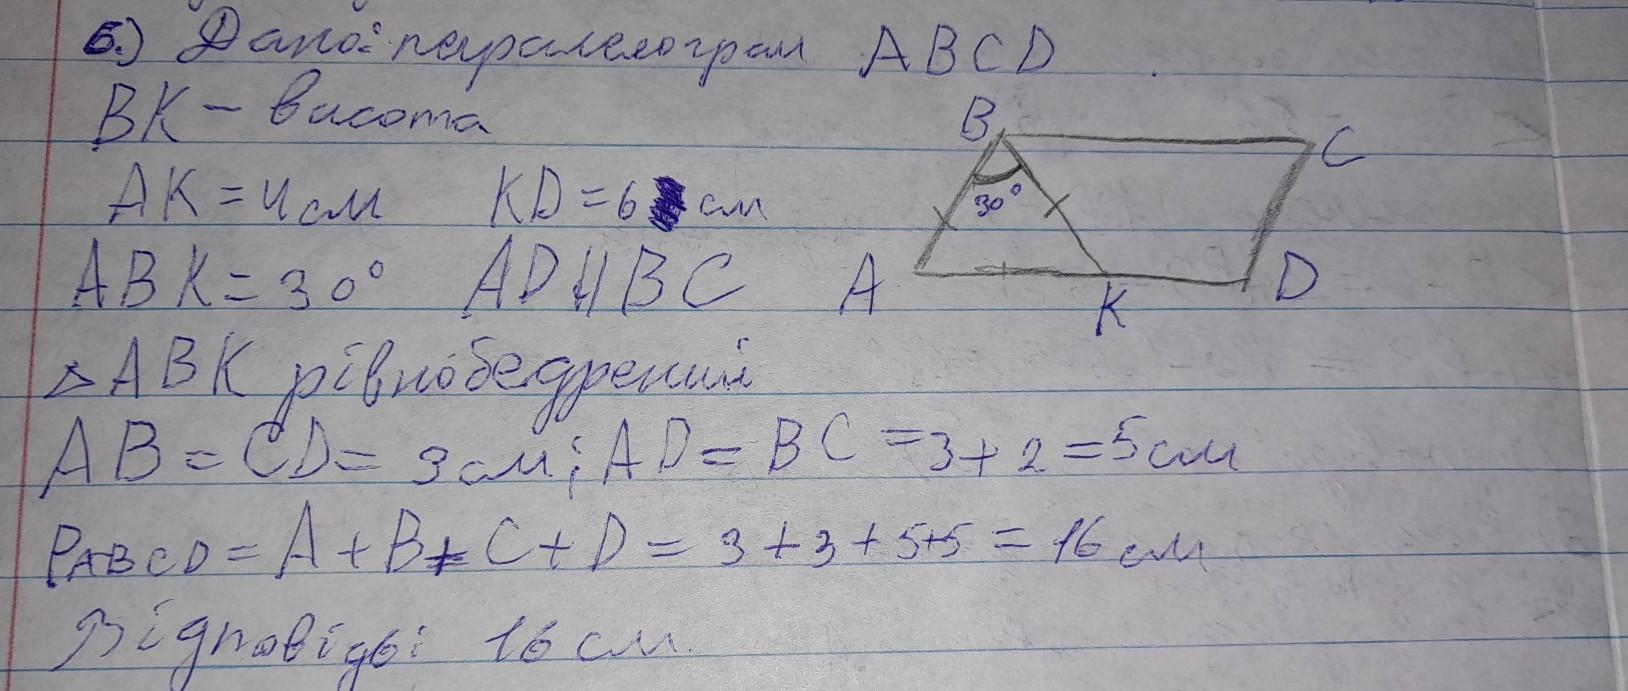 6.) Дано: паралелограм ABCD
BK – висота
AK = 4 см KD = 6 см
ABK = 30° AD || BC
B C
30°
A K D
△ ABK рівнобедрений
AB = CD = 3 см; AD = BC = 3 + 2 = 5 см
PABCD = A + B + C + D = 3 + 3 + 5+5 = 16 см
Відповідь: 16 см.